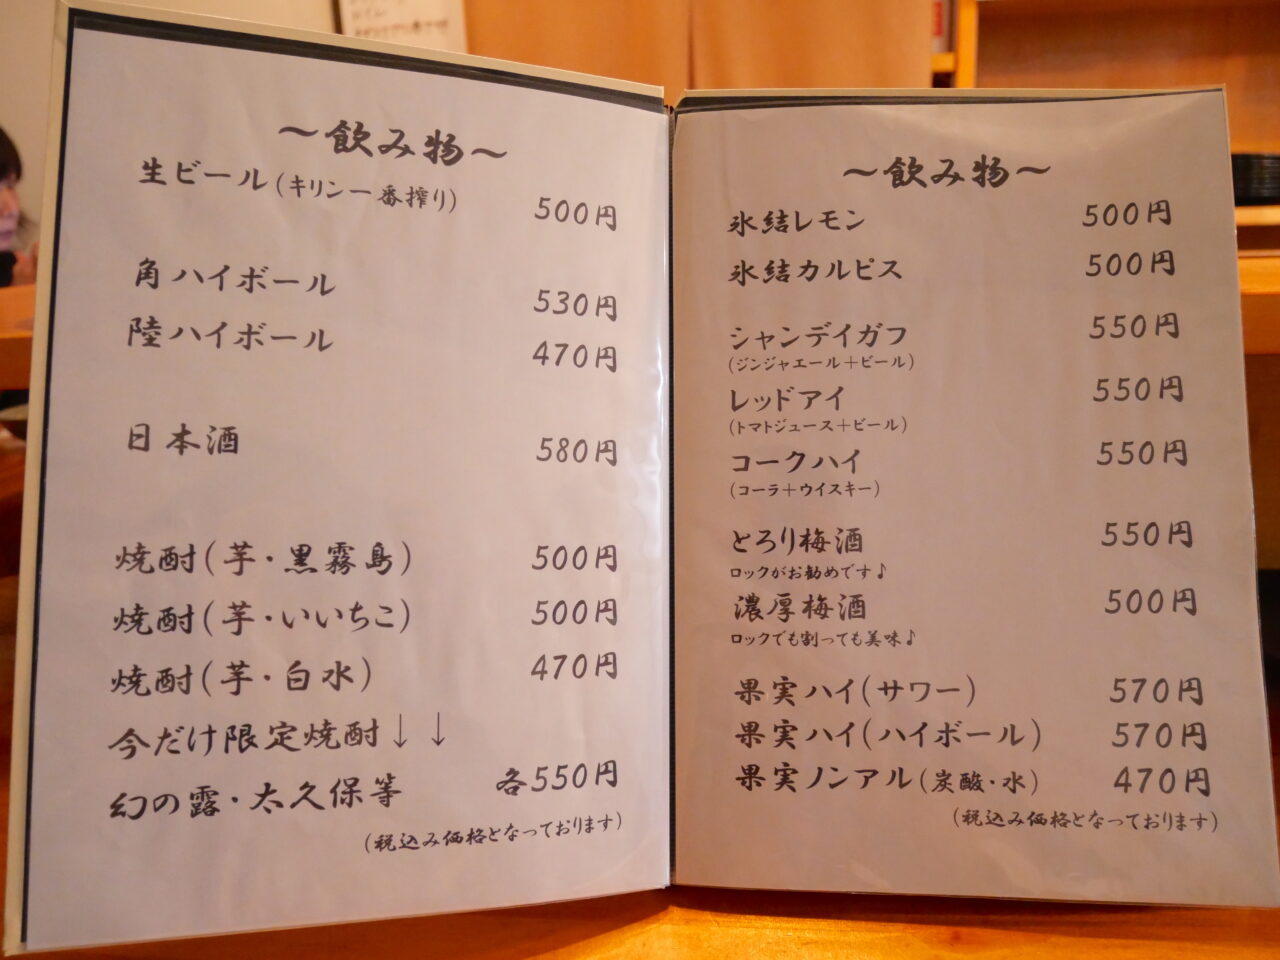 ～飲み物～
生ビール(キリン一番搾り) 500円
角ハイボール 530円
陸ハイボール 470円
日本酒 580円
焼酎(芋・黒霧島) 500円
焼酎(芋・いいちこ) 500円
焼酎(芋・白水) 470円
今だけ限定焼酎↓↓
幻の露・太久保等 各550円
(税込み価格となっております)
～飲み物～
氷結レモン 500円
氷結カルピス 500円
シャンデイガフ 550円
(ジンジャエール＋ビール)
レッドアイ 550円
(トマトジュース＋ビール)
コークハイ 550円
(コーラ＋ウイスキー)
とろり梅酒 550円
ロックがお勧めです♪
濃厚梅酒 500円
ロックでも割っても美味♪
果実ハイ(サワー) 570円
果実ハイ(ハイボール) 570円
果実ノンアル(炭酸・水) 470円
(税込み価格となっております)